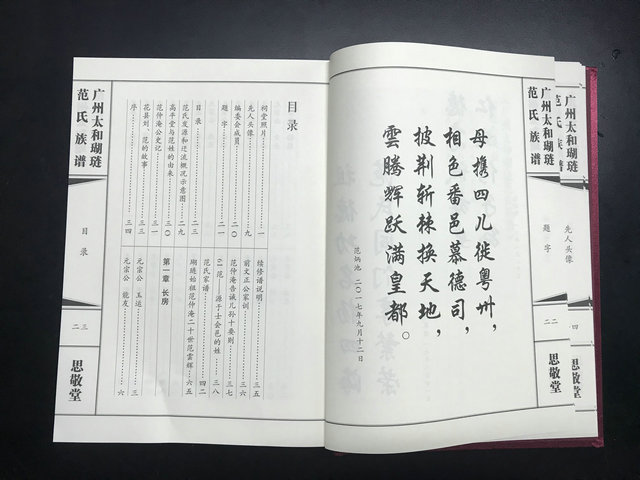 仁
广州太和瑚琏
范氏族谱
先人头像
四
广州太和瑚琏
范氏族谱
题字
二二
思敬堂
母携四儿徙粤州，
相色番邑慕德司，
披荆斩棘换天地，
雲腾辉跃满皇都。
范炳池 二〇一七年九月十二日
目录
祠堂照片……一
先人头像……九
编委会成员……二〇
题字……二一
目录……二三
范氏发源和迁流概况示意图……二九
高平堂与范姓的由来……三〇
范仲淹公史记……三一
花县刘、范的故事……三三
序……三四
续修谱说明……三五
前文正公家训……三六
范仲淹告诫儿孙十要则……三七
21 范——源于士会邑的姓……三八
范氏家谱……四二
瑚琏始祖范仲淹二十世范雲辉……六五
第一章 长房
元宗公 玉运……三
元宗公 能友……六
广州太和瑚琏
范氏族谱
目录
二三
思敬堂